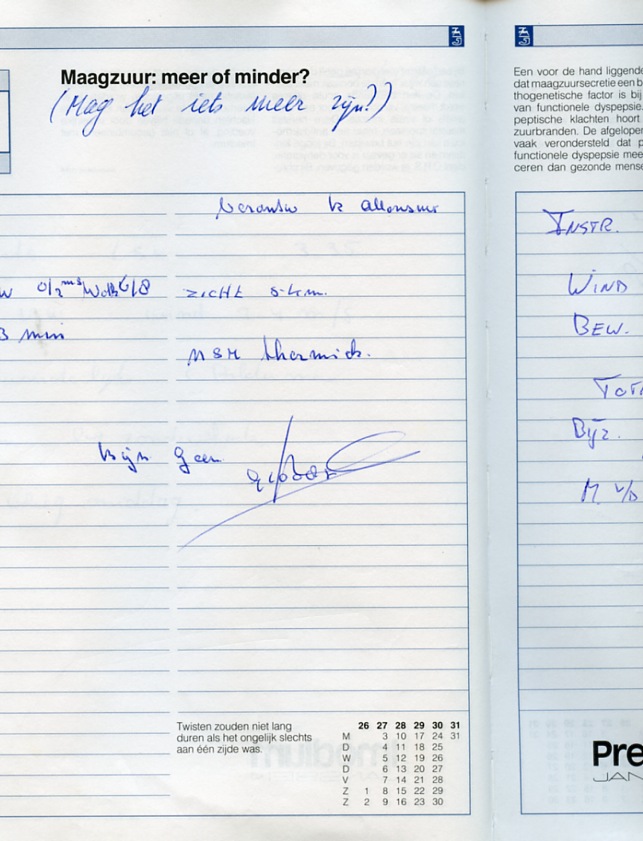 Maagzuur: meer of minder?
(Mag het iets meer zijn?)
zicht
3 min
thermiek.
Bijz geen
Twisten zouden niet lang
duren als het ongelijk slechts
aan één zijde was.
26 27 28 29 30 31
M 3 10 17 24 31
D 4 11 18 25
W 5 12 19 26
D 6 13 20 27
V 7 14 21 28
Z 1 8 15 22 29
Z 2 9 16 23 30
Een voor de hand liggende
dat maagzuursecretie een b
thogenetische factor is bij
van functionele dyspepsie.
peptische klachten hoort
zuurbranden. De afgelopen
vaak verondersteld dat p
functionele dyspepsie mee
ceren dan gezonde mens
INSTR.
WIND
BEW.
TOT
Bijz.
M v/d
Pre
JAN